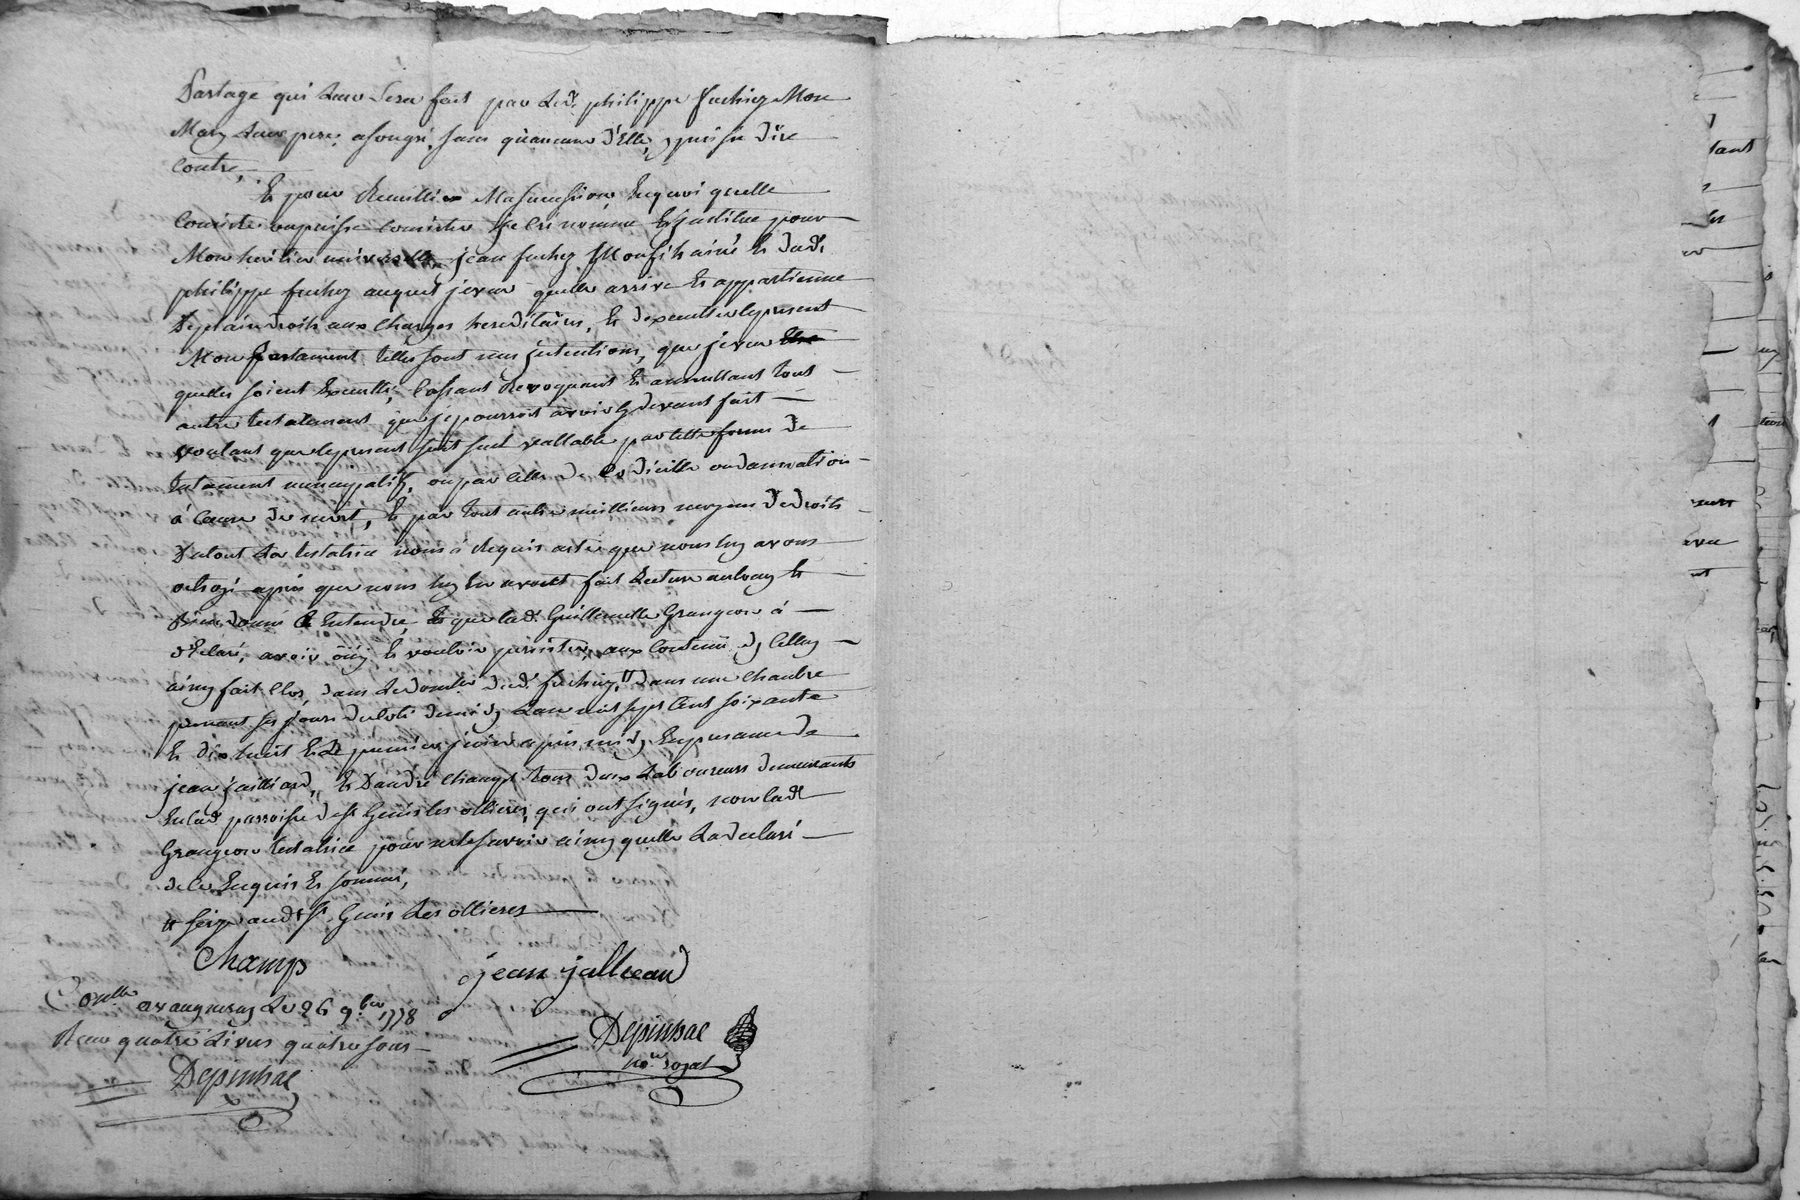 Partage qui leur sera fait par led. philippe fuchez Mon
Mary leur pere, a son gré, sans qu'aucune d'Elle, y puisse dire
contre,
Et pour Recuillir Ma succession En quoi qu'elle
Consiste ou puisse consister J'ai nommé Et Jnstitue pour
Mon heritier universelle, jean fuchez Mon fils ainé Et dud.
philippe fuchez auquel je veux quelle arrive Et appartienne
De plain droits aux charges hereditaires, Et d'executer le present
Mon Testament, telles sont mes jntentions, que je veux
quelles soient Executté, Cassant Revoquant Et annullant tout
autre testatement que je pourrois avoir cy devant fait
voulant que le present soit seul vallable par telle forme de
testament nuncupatif, ou par celle de Codicille ou donnation
à Cause de mort, Et par tout autre meillieurs moyens de droits
Dutout La testatrice nous à Requis acte que nous luy avons
octroyé après que nous luy En avons fait Lecture au long Et
donné à Entendre, Et que lad. Guillemette Grangeon à
déclaré, avoir oüy Et vouloir persister, aux Contenu dy Celluy
ainsy fait Clos dans Le domicile dud. fuchez, # dans une chambre
prenant ses jours du Coté de midy L'an mil sept Cent soixante
Et dix huit Et Le premier juin après midy En presance de
jean jailliard, Et D'andré Champt tous deux Laboureurs demeurants
En lad. parroisse de St Genis les ollieres, qui ont signés, non lad.
Grangeon testatrice pour ne le savoir ainsy quelle La declaré
de ce Enquis Et sommé,
# St. Genis Les ollieres
Champ
jean jallieard
Con.lle a vaugneray Le 26 9.bre 1778
Reçu quatre Livres quatre sous
Depinhac
Depinhac
No.re royal